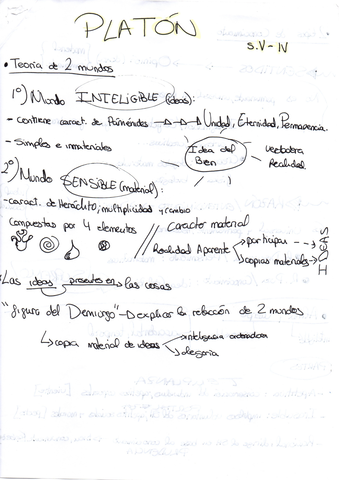 PLATÓN
S.V - IV
• Teoría de 2 mundos
1º) Mundo INTELIGIBLE (ideas):
- contiene caract. de Parménides → Unidad, Eternidad, Permanencia.
- Simples e inmateriales
Idea del Bien
verdadera Realidad.
2º) Mundo SENSIBLE (material):
- caract. de Heráclito, multiplicidad y cambio
Compuestas por 4 elementos // Carácter material
Realidad Aparente
participan
copias materiales
IDEAS
Las ideas presentes en las cosas
"figura del Demiurgo" → explicar la relación de 2 mundos
copia material de ideas
inteligencia ordenadora
alegoría